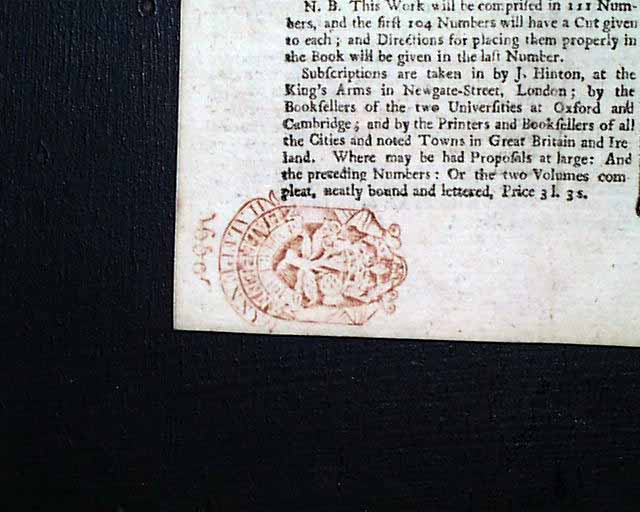 N. B. This Work will be comprised in 111 Num-
bers, and the first 104 Numbers will have a Cut given
to each; and Directions for placing them properly in
the Book will be given in the last Number.
Subscriptions are taken in by J. Hinton, at the
King's Arms in Newgate-Street, London; by the
Booksellers of the two Universities at Oxford and
Cambridge; and by the Printers and Booksellers of all
the Cities and noted Towns in Great Britain and Ire
land. Where may be had Proposals at large: And
the preceding Numbers: Or the two Volumes com-
pleat, neatly bound and lettered, Price 3 l. 3 s.